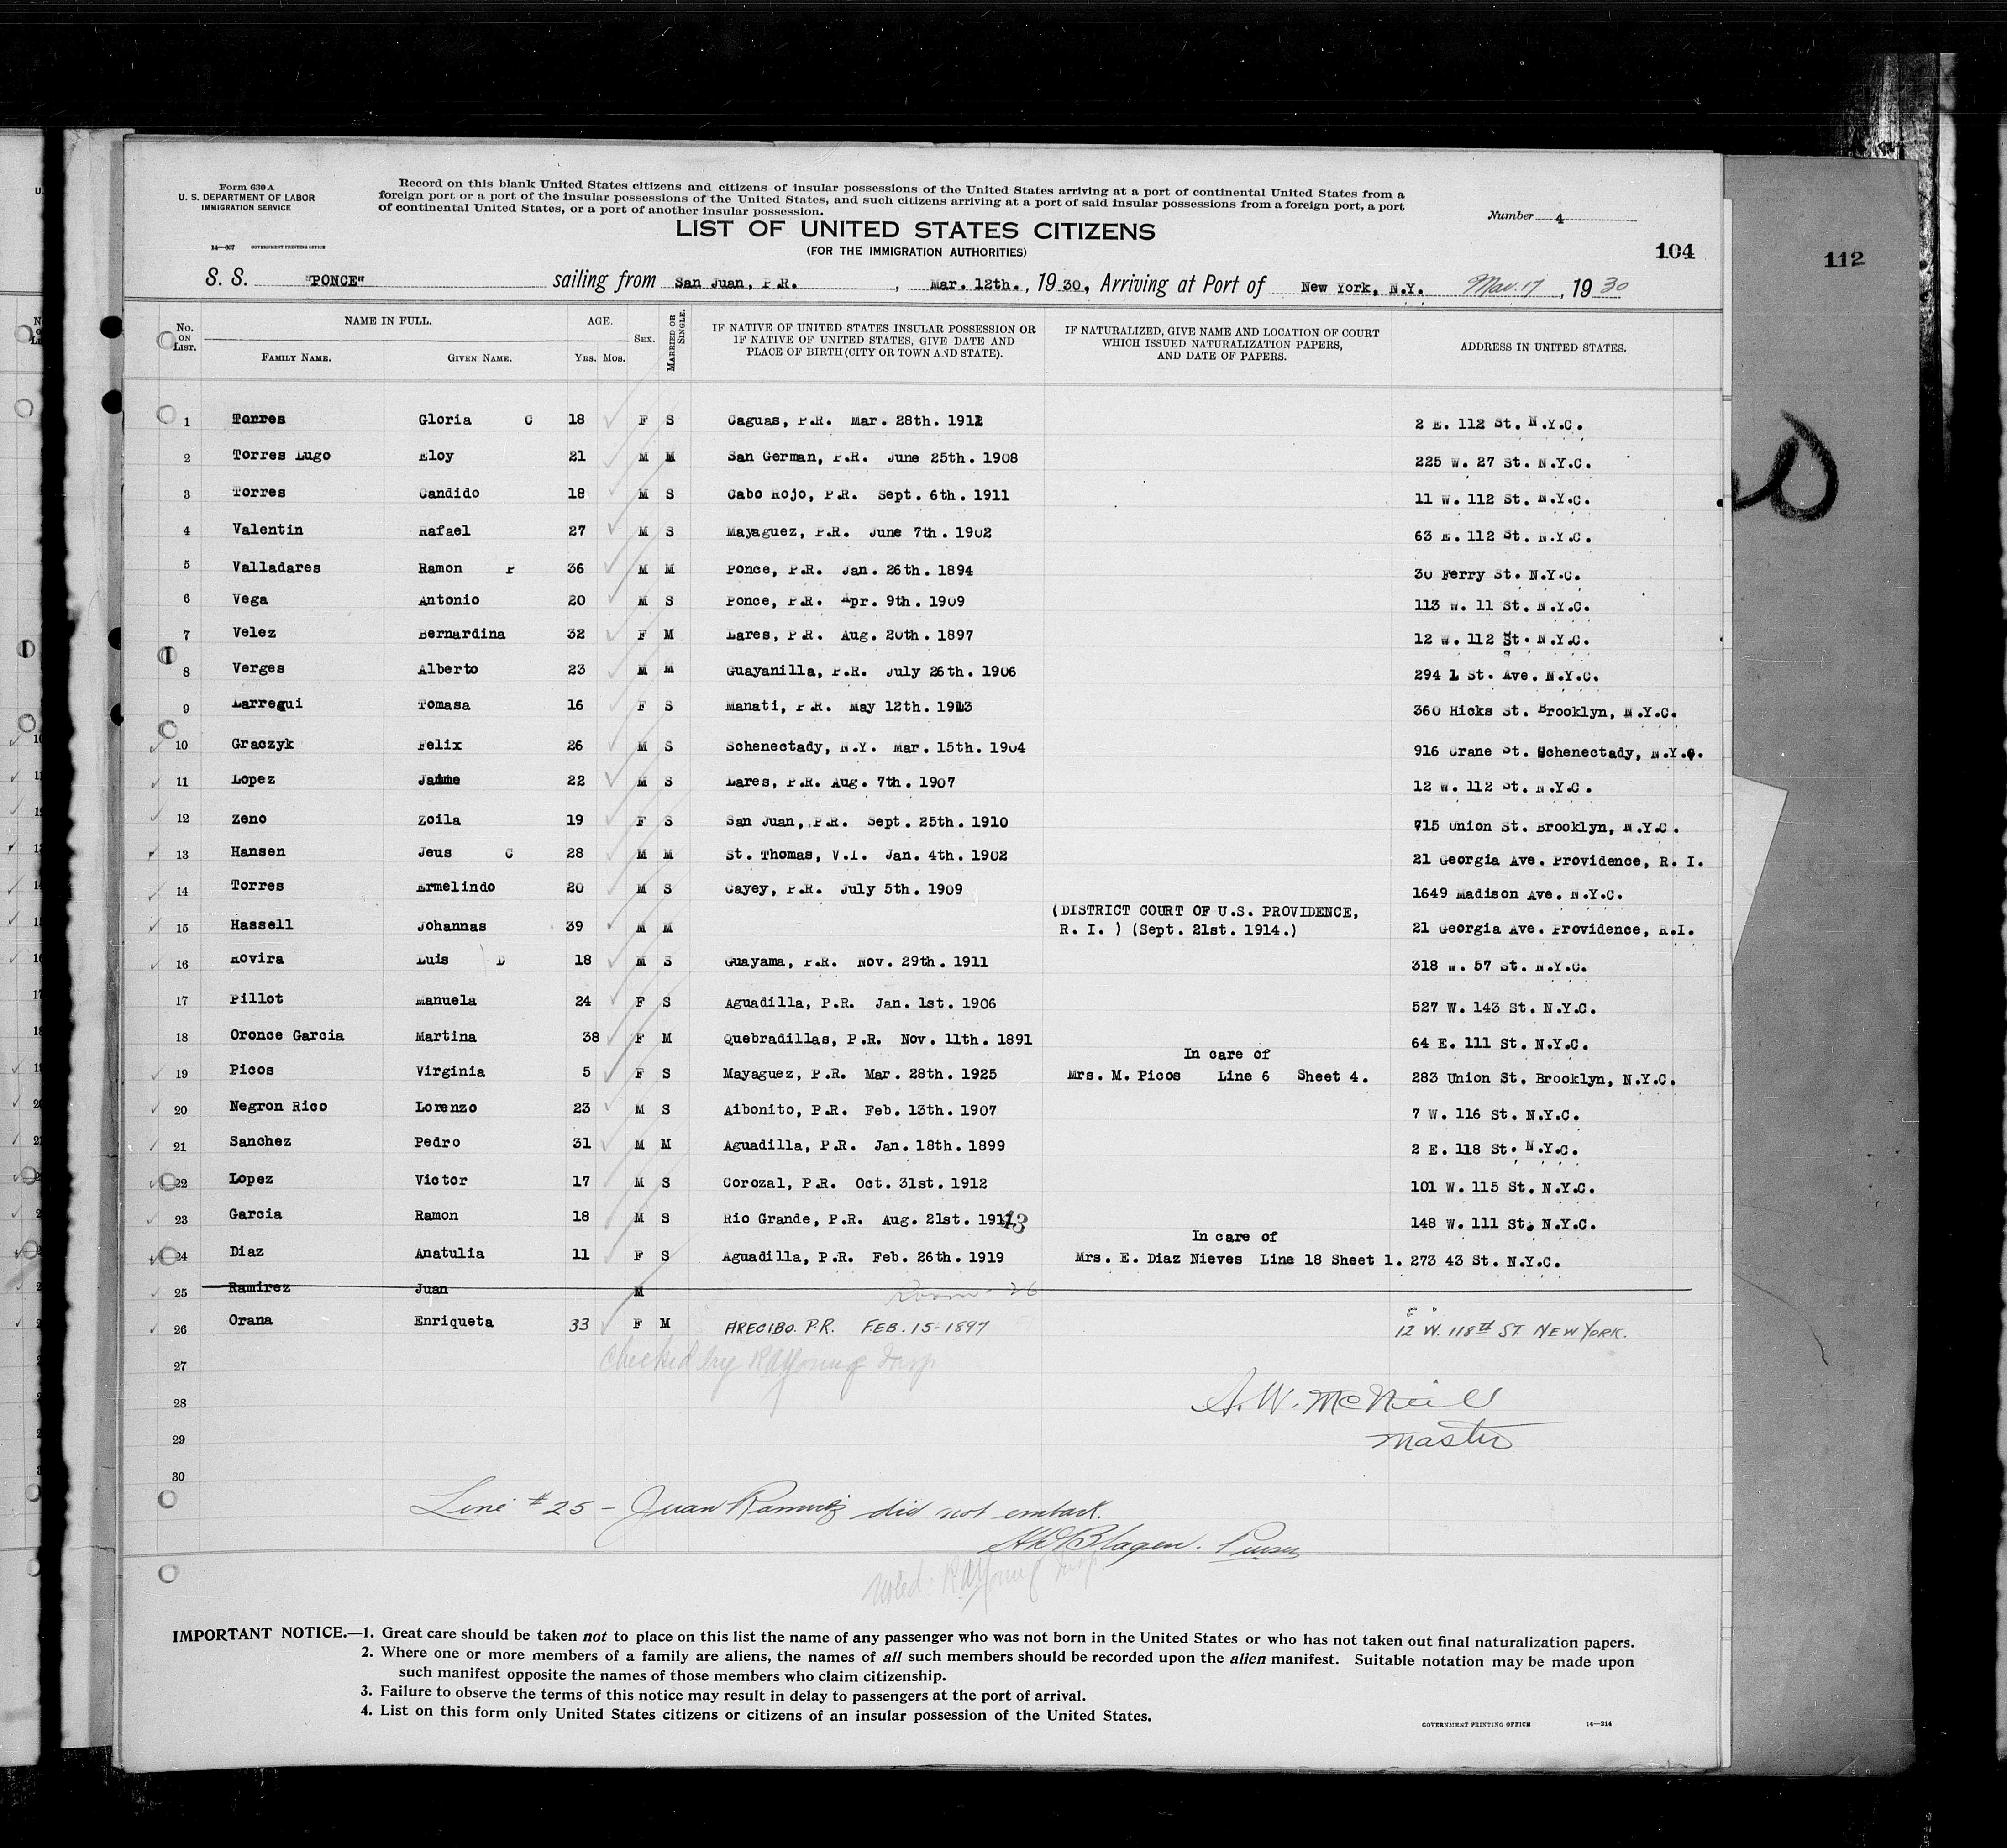 Form 630 A
U. S. DEPARTMENT OF LABOR
IMMIGRATION SERVICE
14—607 GOVERNMENT PRINTING OFFICE
Record on this blank United States citizens and citizens of insular possessions of the United States arriving at a port of continental United States from a
foreign port or a port of the insular possessions of the United States, and such citizens arriving at a port of said insular possessions from a foreign port, a port
of continental United States, or a port of another insular possession.
LIST OF UNITED STATES CITIZENS
(FOR THE IMMIGRATION AUTHORITIES)
Number 4
104
112
S. S. "PONCE" sailing from San Juan, P.R. , Mar. 12th. , 1930, Arriving at Port of New York, N.Y. Mar. 17 , 1930
No. ON LIST. NAME IN FULL. FAMILY NAME. GIVEN NAME. AGE. YRS. MOS. SEX. MARRIED OR SINGLE. IF NATIVE OF UNITED STATES INSULAR POSSESSION OR IF NATIVE OF UNITED STATES, GIVE DATE AND PLACE OF BIRTH (CITY OR TOWN AND STATE). IF NATURALIZED, GIVE NAME AND LOCATION OF COURT WHICH ISSUED NATURALIZATION PAPERS, AND DATE OF PAPERS. ADDRESS IN UNITED STATES.
1 Torres Gloria C 18 F S Caguas, P.R. Mar. 28th. 1912 2 E. 112 St. N.Y.C.
2 Torres Lugo Eloy 21 M M San German, P.R. June 25th. 1908 225 W. 27 St. N.Y.C.
3 Torres Candido 18 M S Cabo Rojo, P.R. Sept. 6th. 1911 11 W. 112 St. N.Y.C.
4 Valentin Rafael 27 M S Mayaguez, P.R. June 7th. 1902 63 E. 112 St. N.Y.C.
5 Valladares Ramon P 36 M M Ponce, P.R. Jan. 26th. 1894 30 Ferry St. N.Y.C.
6 Vega Antonio 20 M S Ponce, P.R. Apr. 9th. 1909 113 W. 11 St. N.Y.C.
7 Velez Bernardina 32 F M Lares, P.R. Aug. 20th. 1897 12 W. 112 St. N.Y.C.
8 Verges Alberto 23 M M Guayanilla, P.R. July 26th. 1906 294 1 St. Ave. N.Y.C.
9 Larregui Tomasa 16 F S Manati, P.R. May 12th. 1913 360 Hicks St. Brooklyn, N.Y.C.
10 Graczyk Felix 26 M S Schenectady, N.Y. Mar. 15th. 1904 916 Crane St. Schenectady, N.Y.C.
11 Lopez Jaime 22 M S Lares, P.R. Aug. 7th. 1907 12 W. 112 St. N.Y.C.
12 Zeno Zoila 19 F S San Juan, P.R. Sept. 25th. 1910 715 Union St. Brooklyn, N.Y.C.
13 Hansen Jeus C 28 M M St. Thomas, V.I. Jan. 4th. 1902 21 Georgia Ave. Providence, R. I.
14 Torres Ermelindo 20 M S Cayey, P.R. July 5th. 1909 1649 Madison Ave. N.Y.C.
(DISTRICT COURT OF U.S. PROVIDENCE,
15 Hassell Johannas 39 M M R. I. ) (Sept. 21st. 1914.) 21 Georgia Ave. Providence, R.I.
16 Rovira Luis D 18 M S Guayama, P.R. Nov. 29th. 1911 318 W. 57 St. N.Y.C.
17 Pillot Manuela 24 F S Aguadilla, P.R. Jan. 1st. 1906 527 W. 143 St. N.Y.C.
18 Oronce Garcia Martina 38 F M Quebradillas, P.R. Nov. 11th. 1891 64 E. 111 St. N.Y.C.
In care of
19 Picos Virginia 5 F S Mayaguez, P.R. Mar. 28th. 1925 Mrs. M. Picos Line 6 Sheet 4. 283 Union St. Brooklyn, N.Y.C.
20 Negron Rico Lorenzo 23 M S Aibonito, P.R. Feb. 13th. 1907 7 W. 116 St. N.Y.C.
21 Sanchez Pedro 31 M M Aguadilla, P.R. Jan. 18th. 1899 2 E. 118 St. N.Y.C.
22 Lopez Victor 17 M S Corozal, P.R. Oct. 31st. 1912 101 W. 115 St. N.Y.C.
23 Garcia Ramon 18 M S Rio Grande, P.R. Aug. 21st. 1911 13 148 W. 111 St. N.Y.C.
In care of
24 Diaz Anatulia 11 F S Aguadilla, P.R. Feb. 26th. 1919 Mrs. E. Diaz Nieves Line 18 Sheet 1. 273 43 St. N.Y.C.
25 Ramirez Juan M Room 26
26 Orana Enriqueta 33 F M ARECIBO. P.R. FEB. 15-1897 12 W. 118th ST. NEW YORK.
27 Checked by R A Young Insp
28 A. W. McNeil
29 Master
30
Line # 25 - Juan Ramirez did not embark.
Hagen. Purser
Noted: R A Young Insp.
IMPORTANT NOTICE.—1. Great care should be taken not to place on this list the name of any passenger who was not born in the United States or who has not taken out final naturalization papers.
2. Where one or more members of a family are aliens, the names of all such members should be recorded upon the alien manifest. Suitable notation may be made upon
such manifest opposite the names of those members who claim citizenship.
3. Failure to observe the terms of this notice may result in delay to passengers at the port of arrival.
4. List on this form only United States citizens or citizens of an insular possession of the United States.
GOVERNMENT PRINTING OFFICE 14—214